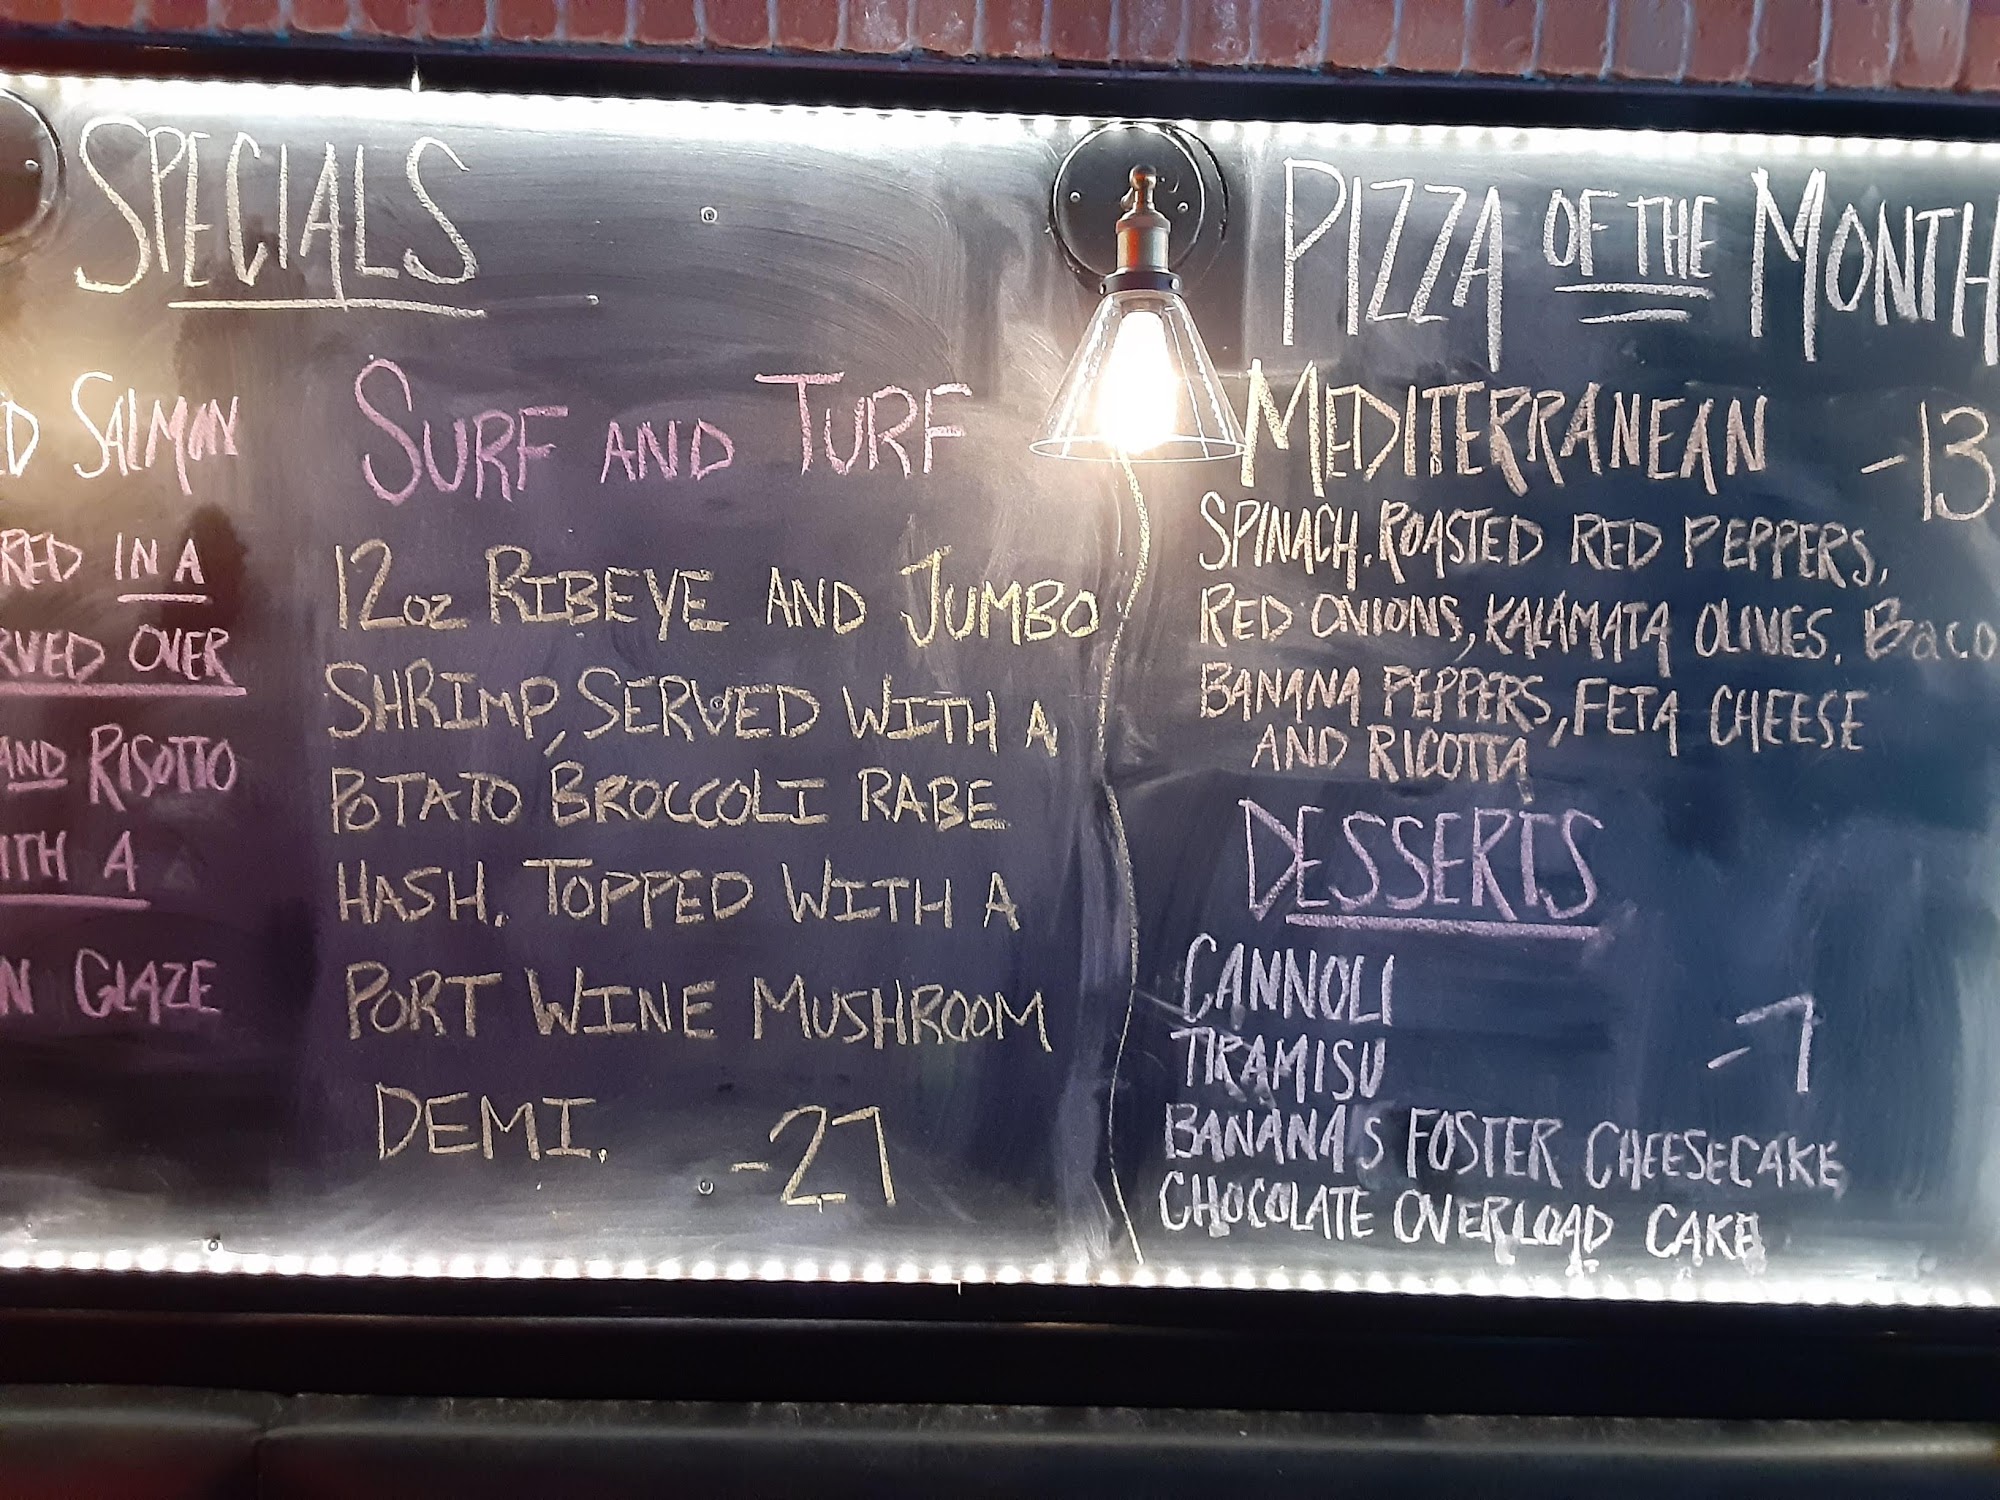 SPECIALS
SALMON
IN A
OVER
AND RISOTTO
A
GLAZE
SURF AND TURF
12oz RIBEYE AND JUMBO
SHRIMP, SERVED WITH A
POTATO BROCCOLI RABE
HASH. TOPPED WITH A
PORT WINE MUSHROOM
DEMI. -27
PIZZA OF THE MONTH
MEDITERRANEAN -13
SPINACH, ROASTED RED PEPPERS,
RED ONIONS, KALAMATA OLIVES, Baco
BANANA PEPPERS, FETA CHEESE
AND RICOTTA
DESSERTS
CANNOLI
TIRAMISU -7
BANANA'S FOSTER CHEESECAKE
CHOCOLATE OVERLOAD CAKE